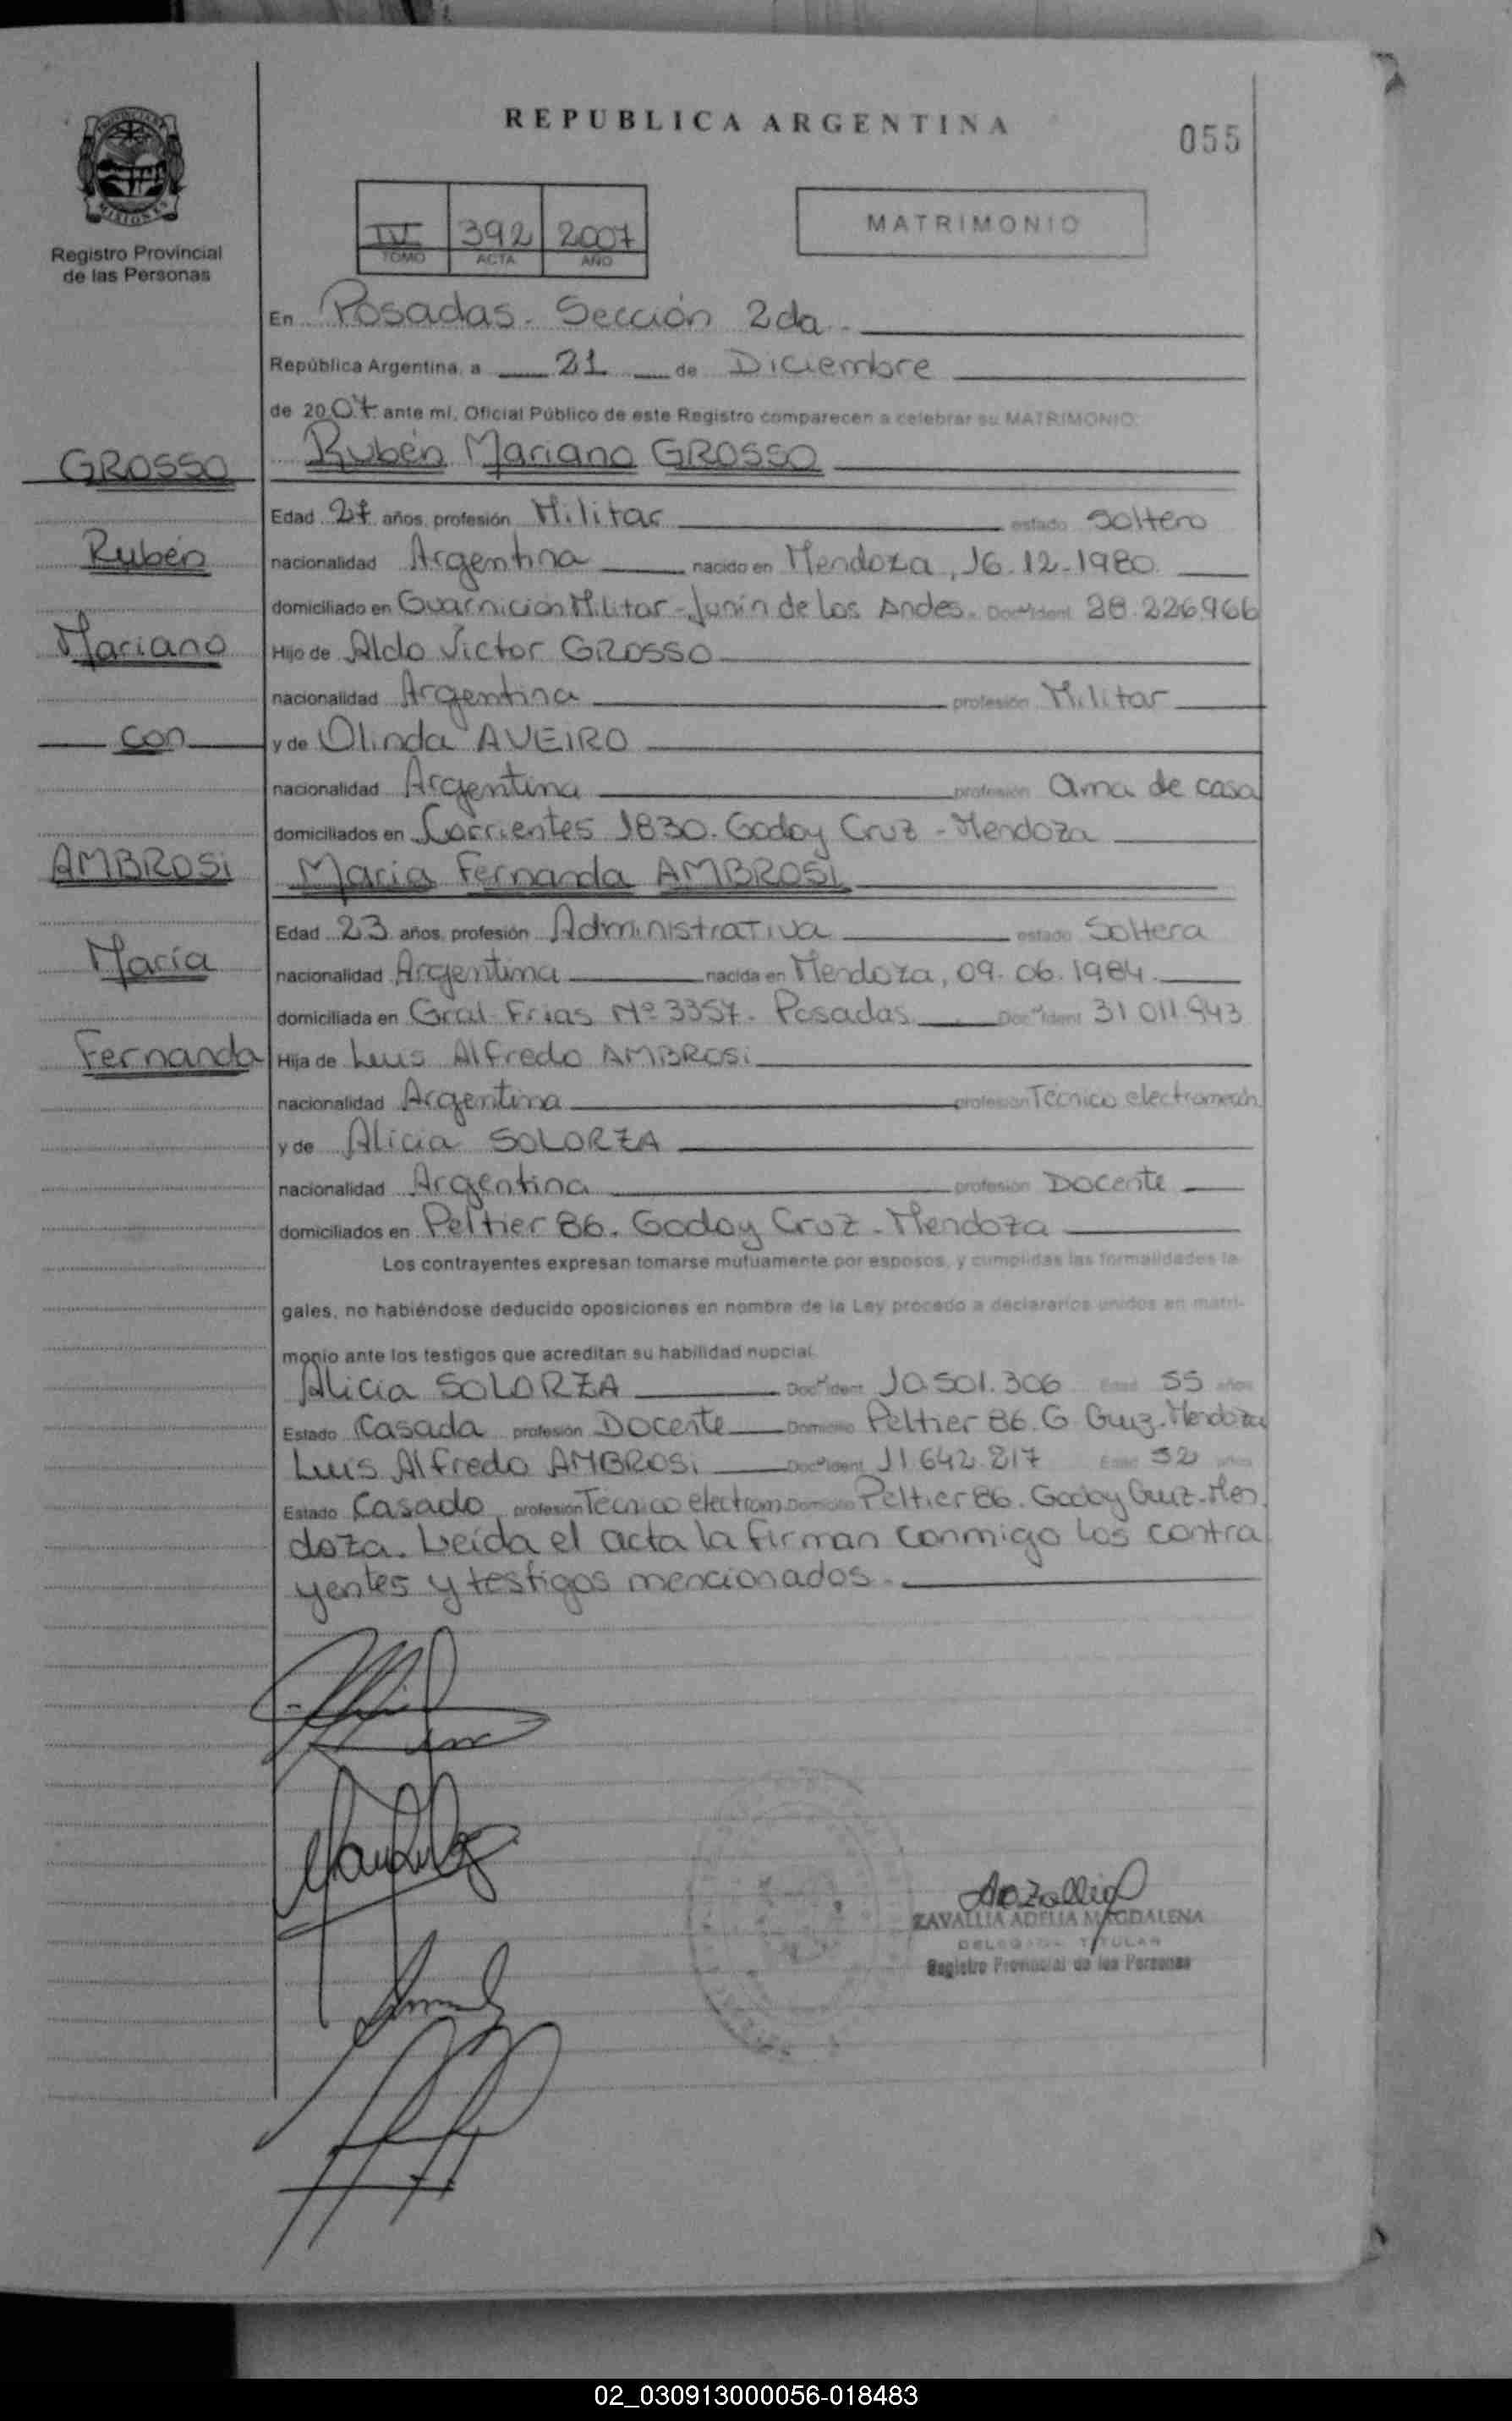 REPUBLICA ARGENTINA
055
PROVINCIA DE
MISIONES
Registro Provincial
de las Personas
IV 392 2007
TOMO ACTA AÑO
MATRIMONIO
En Posadas - Sección 2da.
República Argentina, a 21 de Diciembre
de 2007 ante mí, Oficial Público de este Registro comparecen a celebrar su MATRIMONIO:
GROSSO
Rubén Mariano GROSSO
Edad 27 años, profesión Militar estado Soltero
Rubén
nacionalidad Argentina nacido en Mendoza, 16.12-1980
domiciliado en Guarnición Militar - Junín de los Andes. Doc. Ident. 28.226966
Mariano
Hijo de Aldo Víctor GROSSO
nacionalidad Argentina profesión Militar
con
y de Olinda AVEIRO
nacionalidad Argentina profesión ama de casa
domiciliados en Corrientes 1830. Godoy Cruz - Mendoza
AMBROSi
María Fernanda AMBROSi
Edad 23 años, profesión Administrativa estado Soltera
María
nacionalidad Argentina nacida en Mendoza, 09.06.1984
domiciliada en Gral. Frias Nº 3357. Posadas Doc. Ident. 31 011.943
Fernanda
Hija de Luis Alfredo AMBROSi
nacionalidad Argentina profesión Técnico electromecán
y de Alicia SOLORZA
nacionalidad Argentina profesión Docente
domiciliados en Peltier 86. Godoy Cruz - Mendoza
Los contrayentes expresan tomarse mutuamente por esposos, y cumplidas las formalidades le-
gales, no habiéndose deducido oposiciones en nombre de la Ley procedo a declararlos unidos en matri-
monio ante los testigos que acreditan su habilidad nupcial.
Alicia SOLORZA Doc. Ident. 10.501.306 Edad 55 años
Estado Casada profesión Docente Domicilio Peltier 86. G. Cruz - Mendoza
Luis Alfredo AMBROSi Doc. Ident. 11.642.217 Edad 52 años
Estado Casado, profesión Técnico electrom Domicilio Peltier 86. Godoy Cruz - Men
doza. Leída el acta la firman conmigo los contra
yentes y testigos mencionados.
ZAVALLIA ADELIA MAGDALENA
DELEGADA TITULAR
Registro Provincial de las Personas
02_030913000056-018483